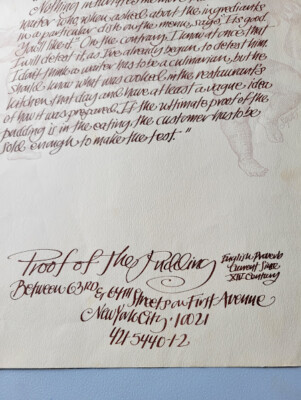 Nothing
waiter who, when asked about the ingredients
in a particular dish on the menu, says "It is good.
You'll like it." On the contrary, I know at once that
I will detest it, as I've already begun to detest him.
I don't think a waiter has to be a culinarian, but he
should know what was cooked in the restaurant's
kitchen that day and have at least a vague idea
of how it was prepared. If the ultimate proof of the
pudding is in the eating, the customer has to be
sold enough to make the test."
Proof of the Pudding
English Proverb
Current Since
XIV Century
Between 63RD & 64TH Streets on First Avenue
New York City · 10021
421-5440+2